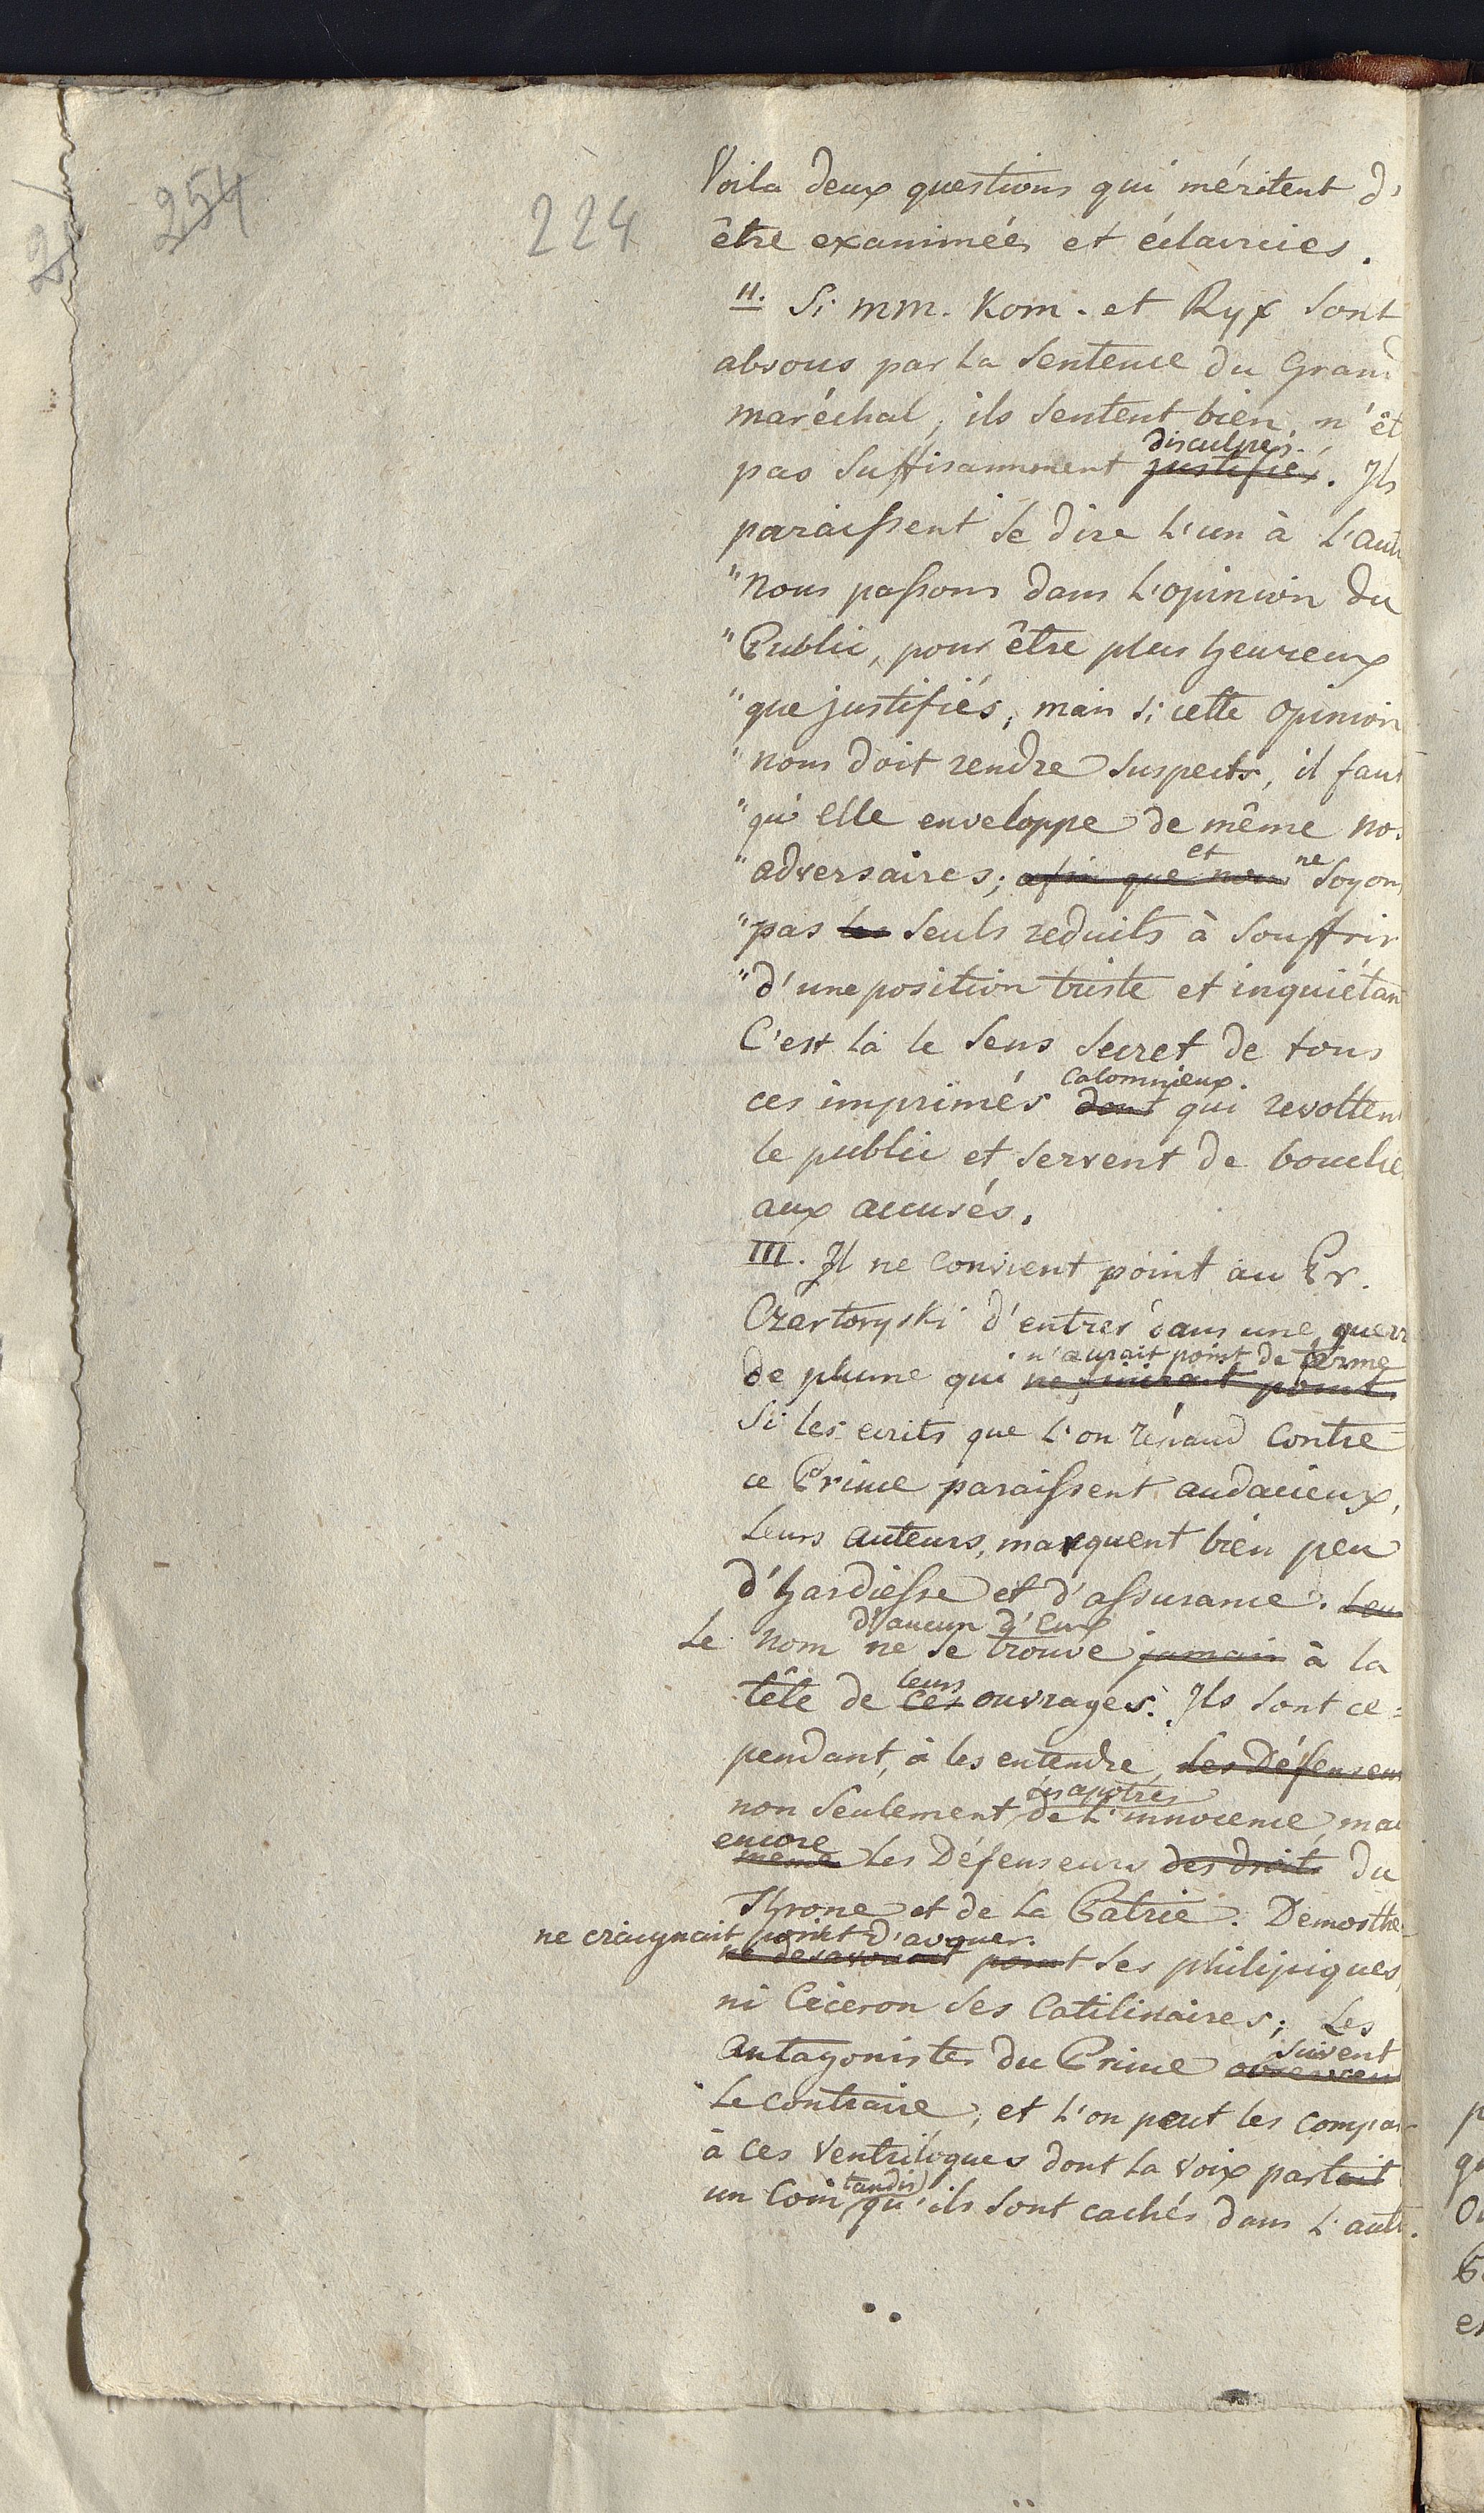 254
224
Voila deux questions qui méritent d'
être examinées et éclaircies.
II. Si MM. Kom. et Ryx sont
absous par la Sentence du Grand
maréchal, ils sentent bien, n'êt
disculpés.
pas suffisamment justifiés. Ils
paraissent se dire l'un à l'aut
"Nous passons dans l'opinion du
"Public, pour être plus heureux
"que justifiés, mais si cette opinion
"nous doit rendre suspects, il faut
"qu'elle enveloppe de même nos
et ne
"adversaires; afin que nous soyons
"pas les seuls reduits à souffrir
"d'une position triste et inquiétan
C'est là le sens secret de tous
calomnieux.
ces imprimés dont qui revoltent
le public et servent de bouclie
aux accusés.
III. Il ne convient point au Pr.
Czartoryski d'entrer dans une guerr
n'aurait point de terme
de plume qui ne finirait point.
Si les ecrits que l'on répand contre
ce Prince paraissent audacieux,
Leurs auteurs, marquent bien peu
d'hardiesse et d'assurance. Leur
d'aucun d'eux
Le nom ne se trouve jamais à la
leurs
tête de ces ouvrages. Ils sont ce=
pendant, à les entendre, les Défenseurs
non seulement de l'innocence, mai
encore
même les Défenseurs des droits du
Throne et de la Patrie. Demosthe
ne craignait point d'avouer.
ne desavouait point ses philipiques,
ni Ciceron ses Catilinaires; Les
suivent
antagonistes du Prince observent
le contraire, et l'on peut les compar
à ces Ventriloques dont la voix partait
tandis
un Coin qu'ils sont cachés dans l'autr.